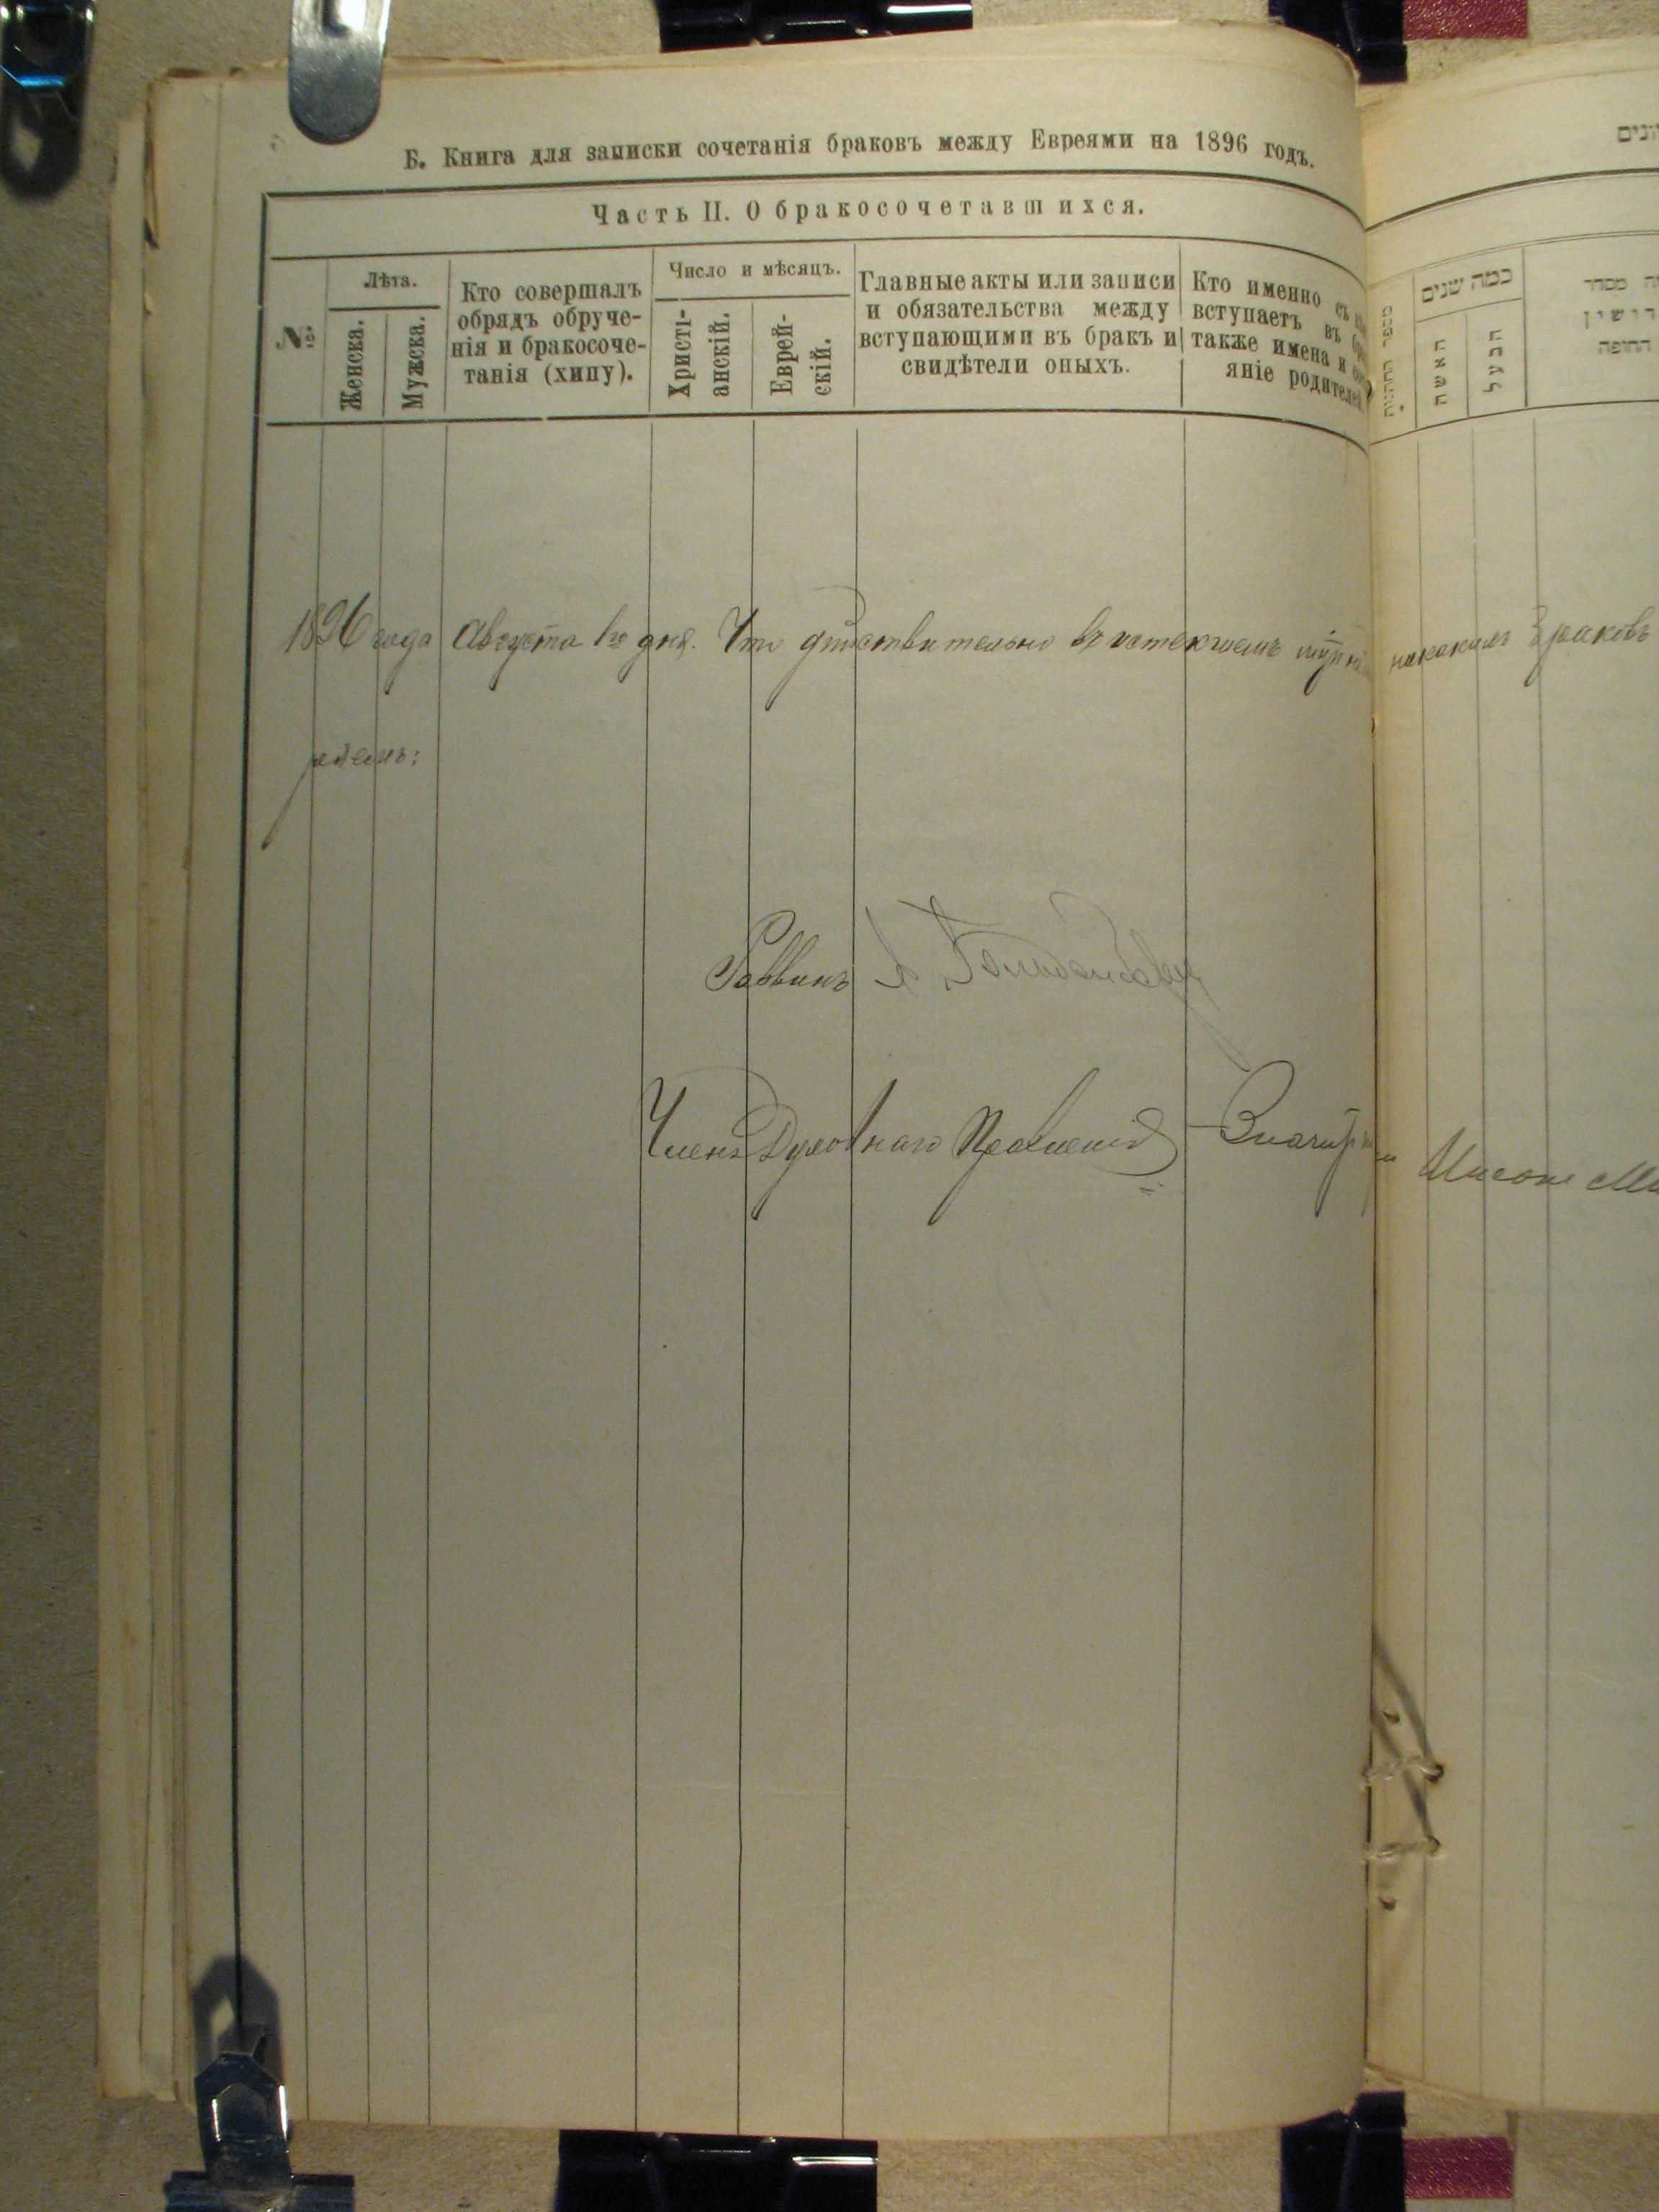 Б. Книга для записки сочетанія браковъ между Евреями на 1896 годъ.
Часть II. О бракосочетавшихся.
№
Лѣта.
Женска.
Мужска.
Кто совершалъ
обрядъ обруче-
нія и бракосоче-
танія (хипу).
Число и мѣсяцъ.
Христі-
анскій.
Еврей-
скій.
Главные акты или записи
и обязательства между
вступающими въ бракъ и
свидѣтели оныхъ.
Кто именно съ
вступаетъ въ
также имена и
яніе родителей
כמה שנים
האשה
הבעל
מסדר
החופה
1896 года Августа 1го дня. Что дѣйствительно въ истекшемъ никакихъ браковъ
Раввинъ
Членъ Духовнаго Правленія